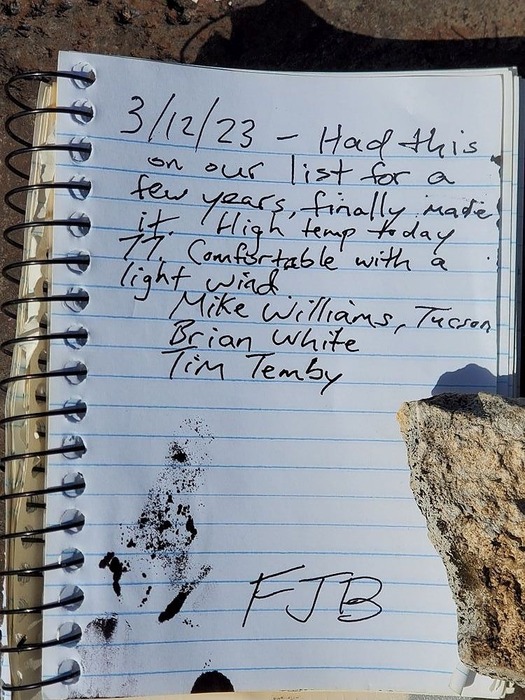 3/12/23 - Had this
on our list for a
few years, finally made
it. High temp today
77. Comfortable with a
light wind
Mike Williams, Tucson
Brian White
Tim Temby
FJB